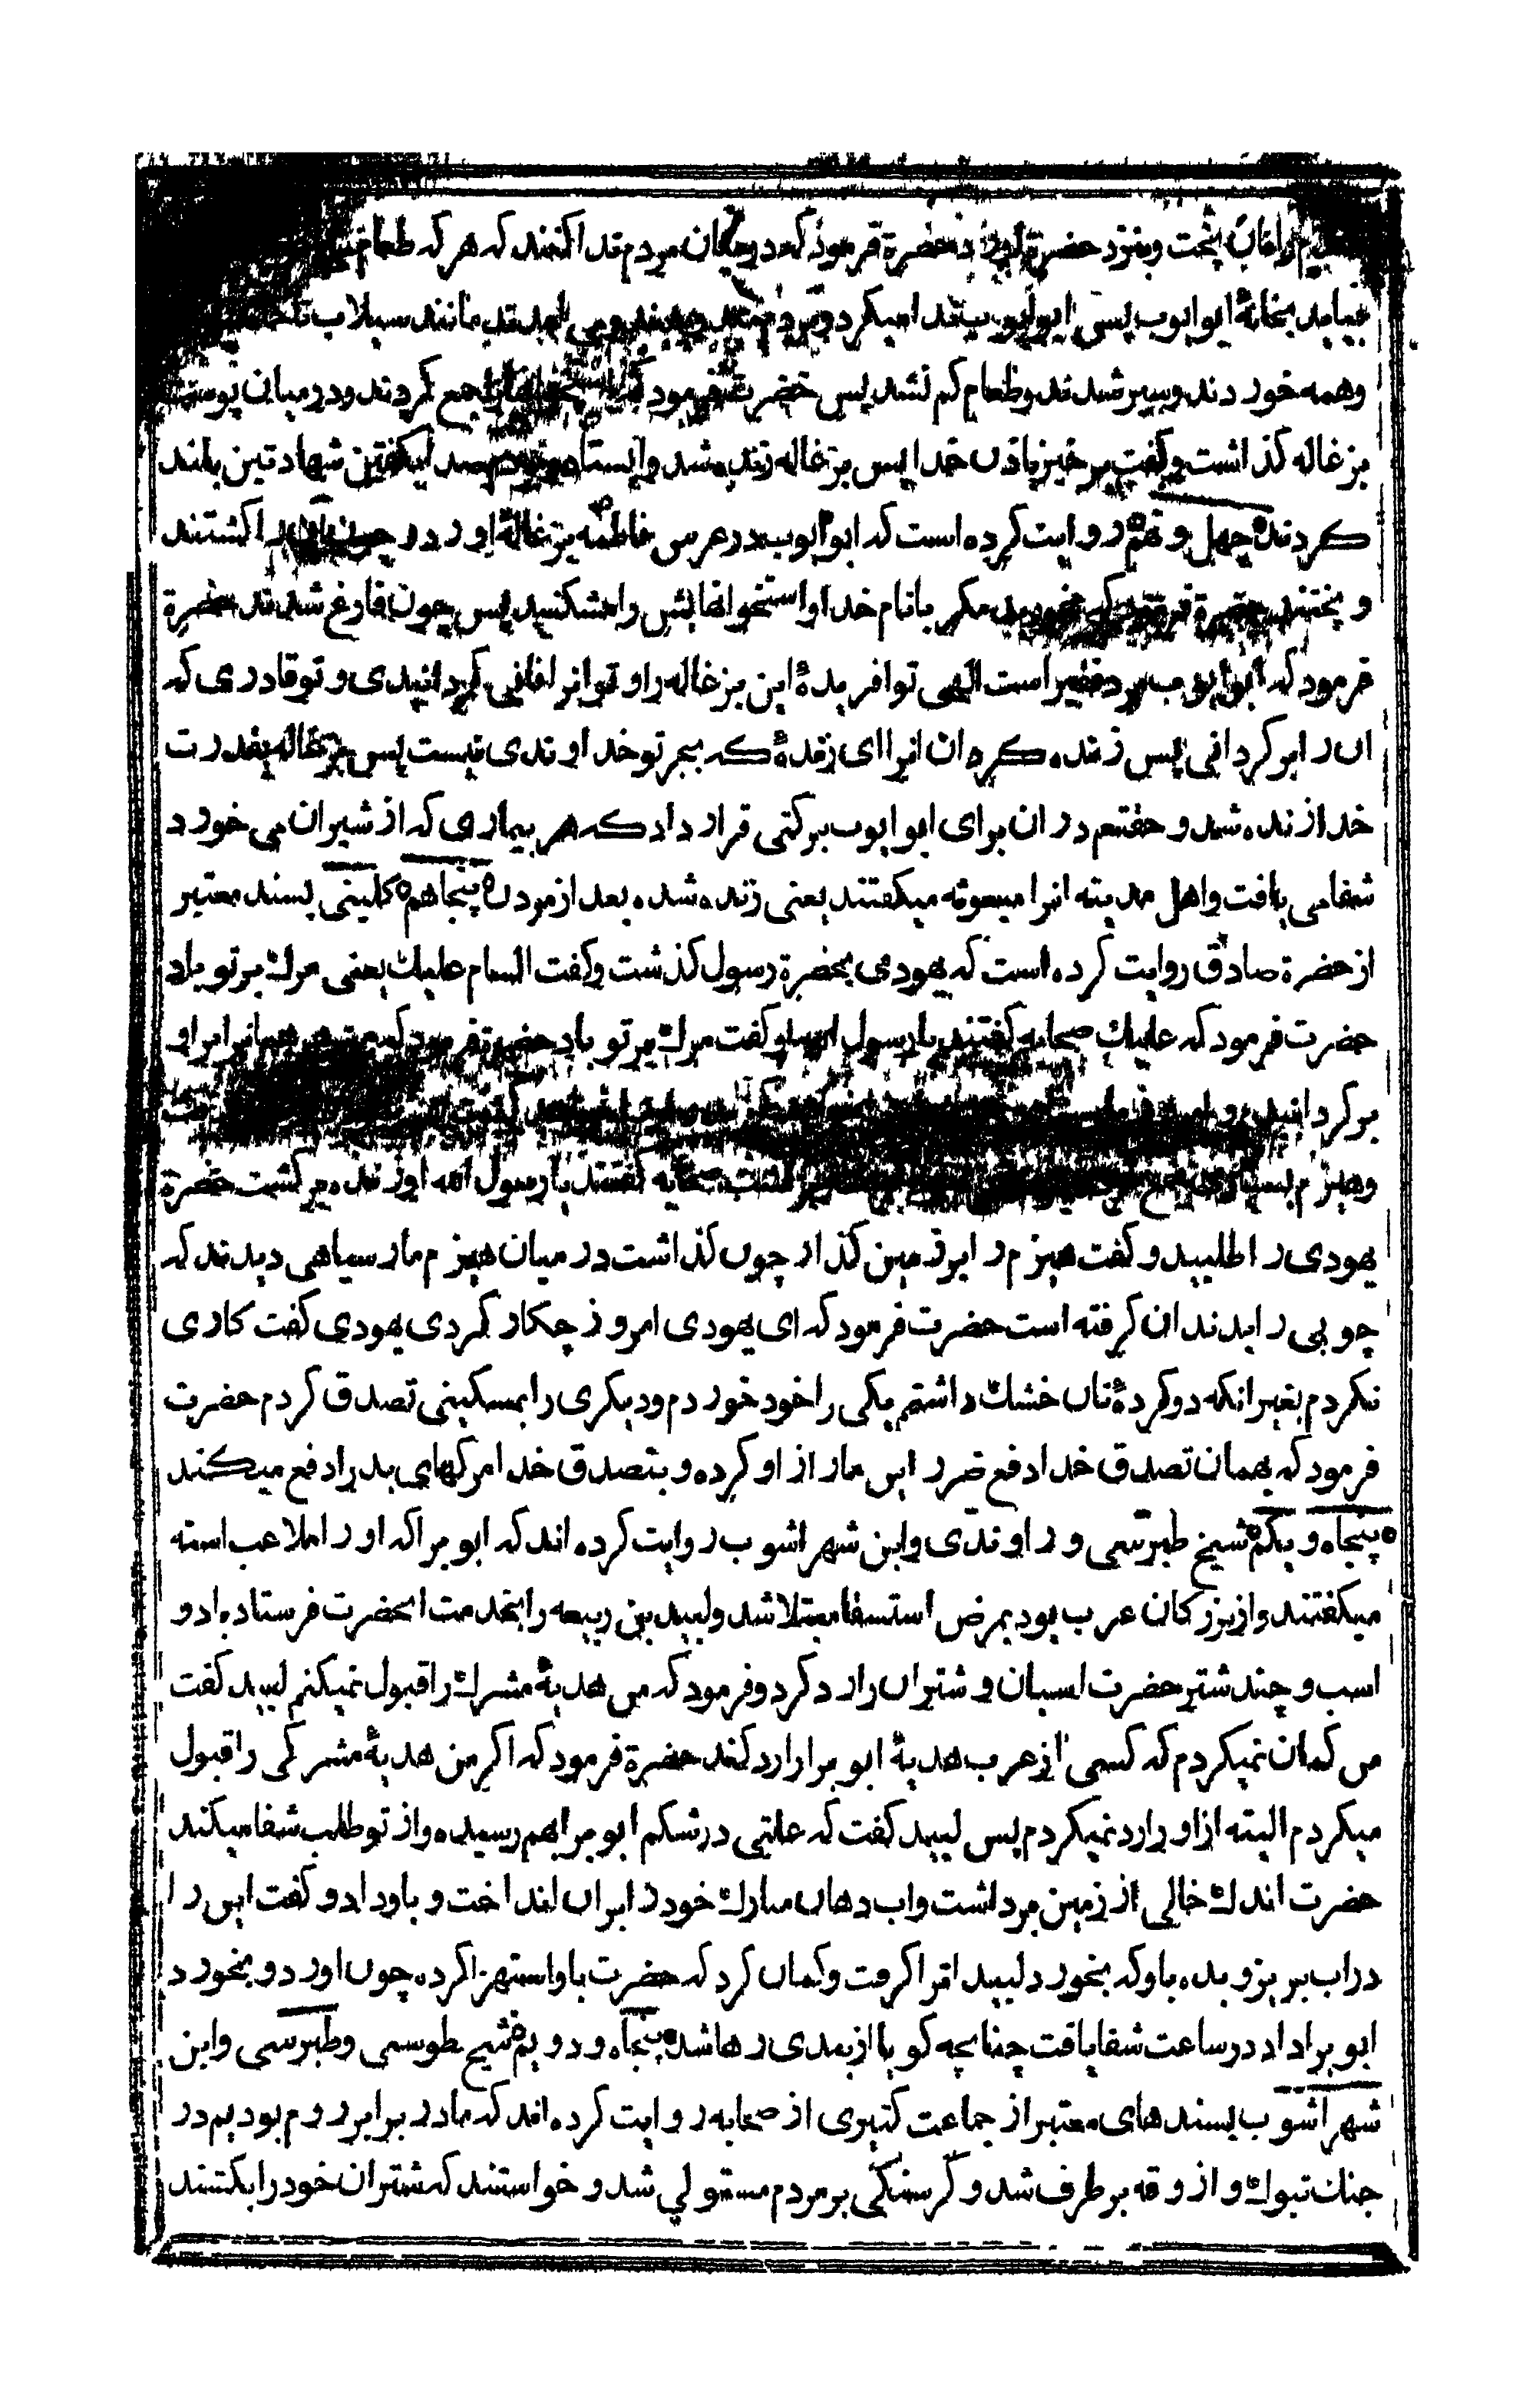 را نان پخت و بنزد حضرة اورد حضرة فرمود که در میان مردم ندا کنند که هر که طعام
بیاید بخانهٔ ابو ایوب پس ابو ایوب ندا میکرد و مردم می امدند مانند سیلاب تا
وهمه خوردند و سیر شدند و طعام کم نشد پس حضرت فرمود که استخوانها را جمع کردند و در میان پوست
بزغاله کذاشت و کفت برخیز باذن خدا پس بزغاله زنده شد و ایستاد و مردم صدا بکفتن شهادتین بلند
کردند چهل و نهم روایت کرده است که ابو ایوب در عرس فاطمه بزغالهٔ اورد و چون انرا کشتند
و پختند حضرة فرمود که مخورید مکر بانام خدا و استخوانهایش را مشکنید پس چون فارغ شدند حضرة
فرمود که ابو ایوب مرد فقیر است الهی تو افریدهٔ این بزغاله را و تو انرا فانی کردانیدی و تو قادری که
ان را برکردانی پس زنده کردان انرا ای زندهٔ که بجز تو خداوندی نیست پس بزغاله بقدرت
خدا زنده شد و حقتعم در ان برای ابو ایوب برکتی قرار داد که هر بیماری که از شیران می خورد
شفا می یافت و اهل مدینه انرا مبعوثه میکفتند یعنی زنده شده بعد از مردن پنجاهم کلینی بسند معتبر
از حضرة صادق روایت کرده است که یهودی بحضرة رسول کذشت و کفت السام علیك یعنی مرك بر تو باد
حضرت فرمود که علیك صحابه کفتند یا رسول الله او کفت مرك بر تو باد حضرت فرمود که من هم همانرا بر او
برکردانیدم و
وهیزم بسیاری جمع برکشت صحابه کفتند یا رسول الله او زنده برکشت حضرة
یهودی را طلبید و کفت هیزم را بر زمین کذار چون کذاشت در میان هیزم مار سیاهی دیدند که
چوبی را بدندان کرفته است حضرت فرمود که ای یهودی امروز چکار کردی یهودی کفت کاری
نکردم بغیر انکه دو کردهٔ نان خشك داشتم یکی را خود خوردم و دیکری را بمسکینی تصدق کردم حضرت
فرمود که بهمان تصدق خدا دفع ضرر این مار از او کرده و بتصدق خدا مرکهای بد را دفع میکند
پنجاه و یکم شیخ طبرسی و راوندی و ابن شهر اشوب روایت کرده اند که ابو براکه او را ملاعب اسنه
میکفتند و از بزرکان عرب بود بمرض استسقا مبتلا شد و لبید بن ربیعه را بخدمت انحضرت فرستاد با دو
اسب و چند شتر حضرت اسبان و شتران را رد کرد و فرمود که من هدیهٔ مشرك را قبول نمیکنم لبید کفت
من کمان نمیکردم که کسی از عرب هدیهٔ ابو برا را رد کند حضرة فرمود که اکر من هدیهٔ مشرکی را قبول
میکردم البته از او را رد نمیکردم پس لبید کفت که علتی در شکم ابو برا بهم رسیده و از تو طلب شفا میکند
حضرت اندك خاکی از زمین برداشت و اب دهان مبارك خود را بران انداخت و باو داد و کفت این را
در اب بریز و بده باو که بخورد لبید انرا کرفت و کمان کرد که حضرت باو استهزا کرده چون اورد و بخورد
ابو برا داد در ساعت شفا یافت چنانچه کویا از بندی رها شد پنجاه و دویم شیخ طوسی و طبرسی و ابن
شهر اشوب بسندهای معتبر از جماعت کثیری از صحابه روایت کرده اند که مادر برابر روم بودیم در
جنك تبوك و ازوقه بر طرف شد و کرسنکی بر مردم مستولی شد و خواستند که شتران خود را بکشند